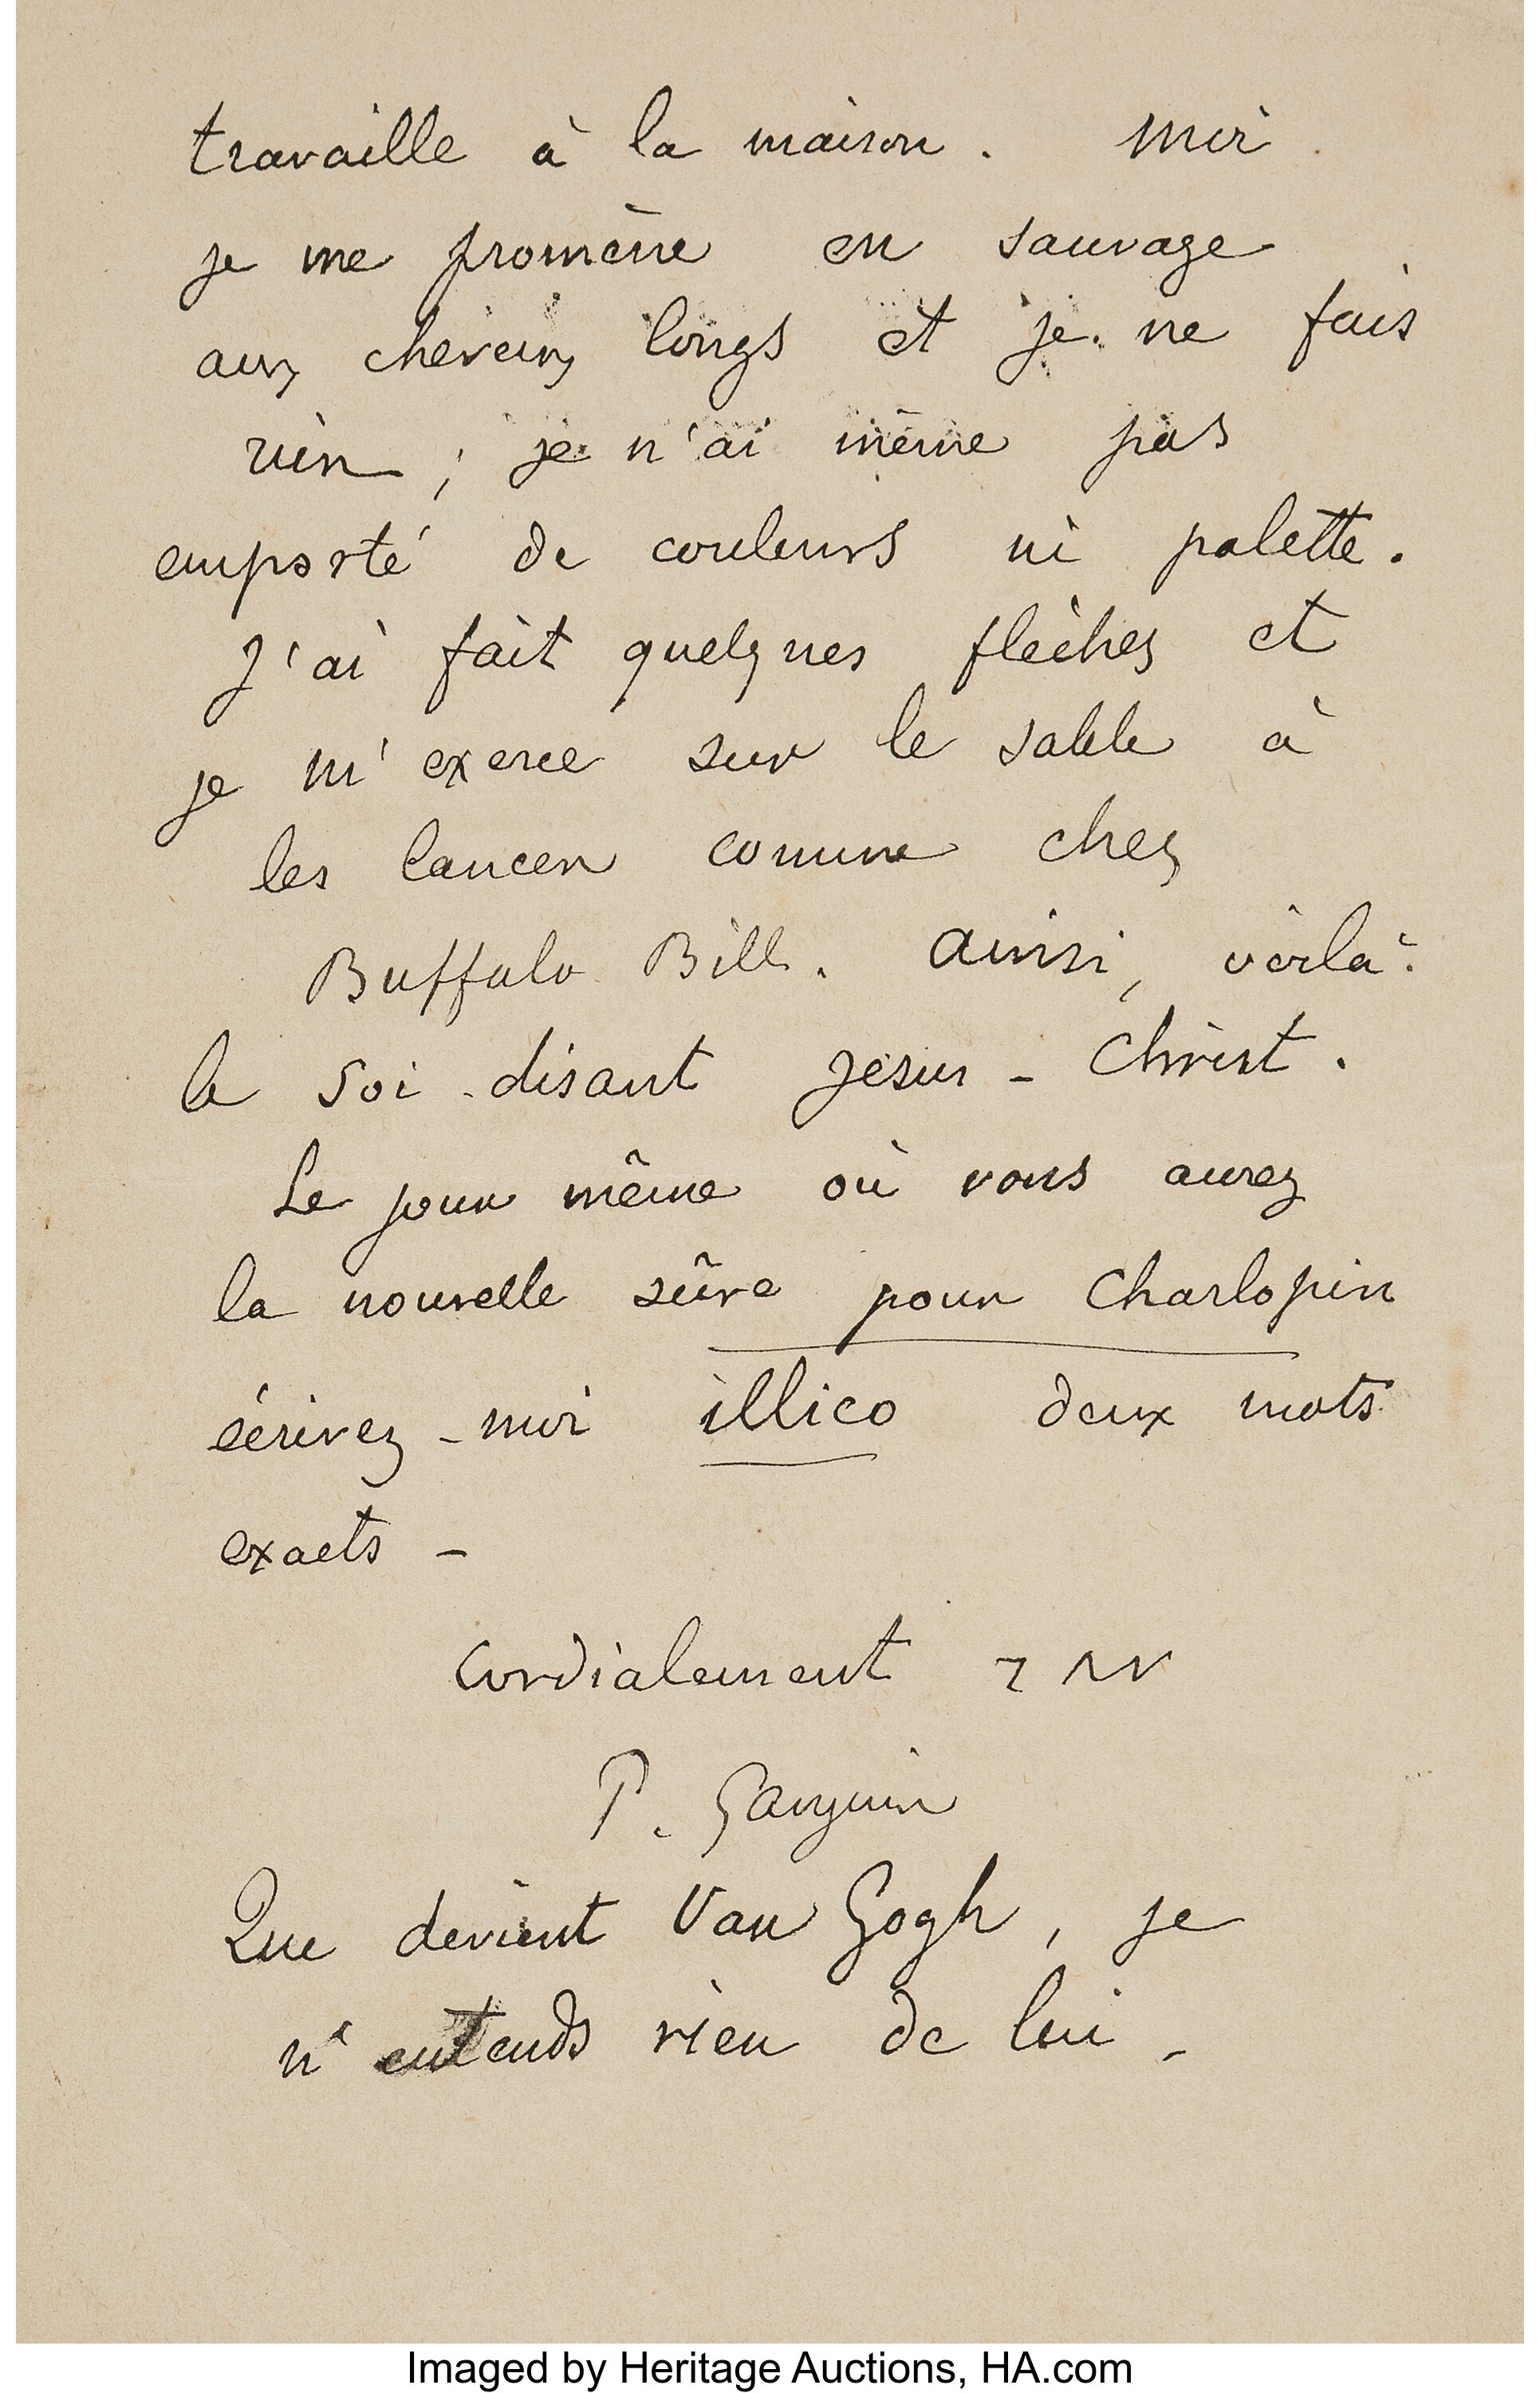 travaille à la maison. Moi
je me promène en sauvage
aux cheveux longs et je ne fais
rien ; je n'ai même pas
emporté de couleurs ni palette.
J'ai fait quelques flèches et
je m'exerce sur le sable à
les lancer comme chez
Buffalo Bill. Ainsi, voilà
le soi-disant Jésus-Christ.
Le jour même où vous aurez
la nouvelle sûre pour Charlopin
écrivez-moi illico deux mots
exacts -
Cordialement
P. Gauguin
Que devient Van Gogh, je
n'entends rien de lui -
Imaged by Heritage Auctions, HA.com